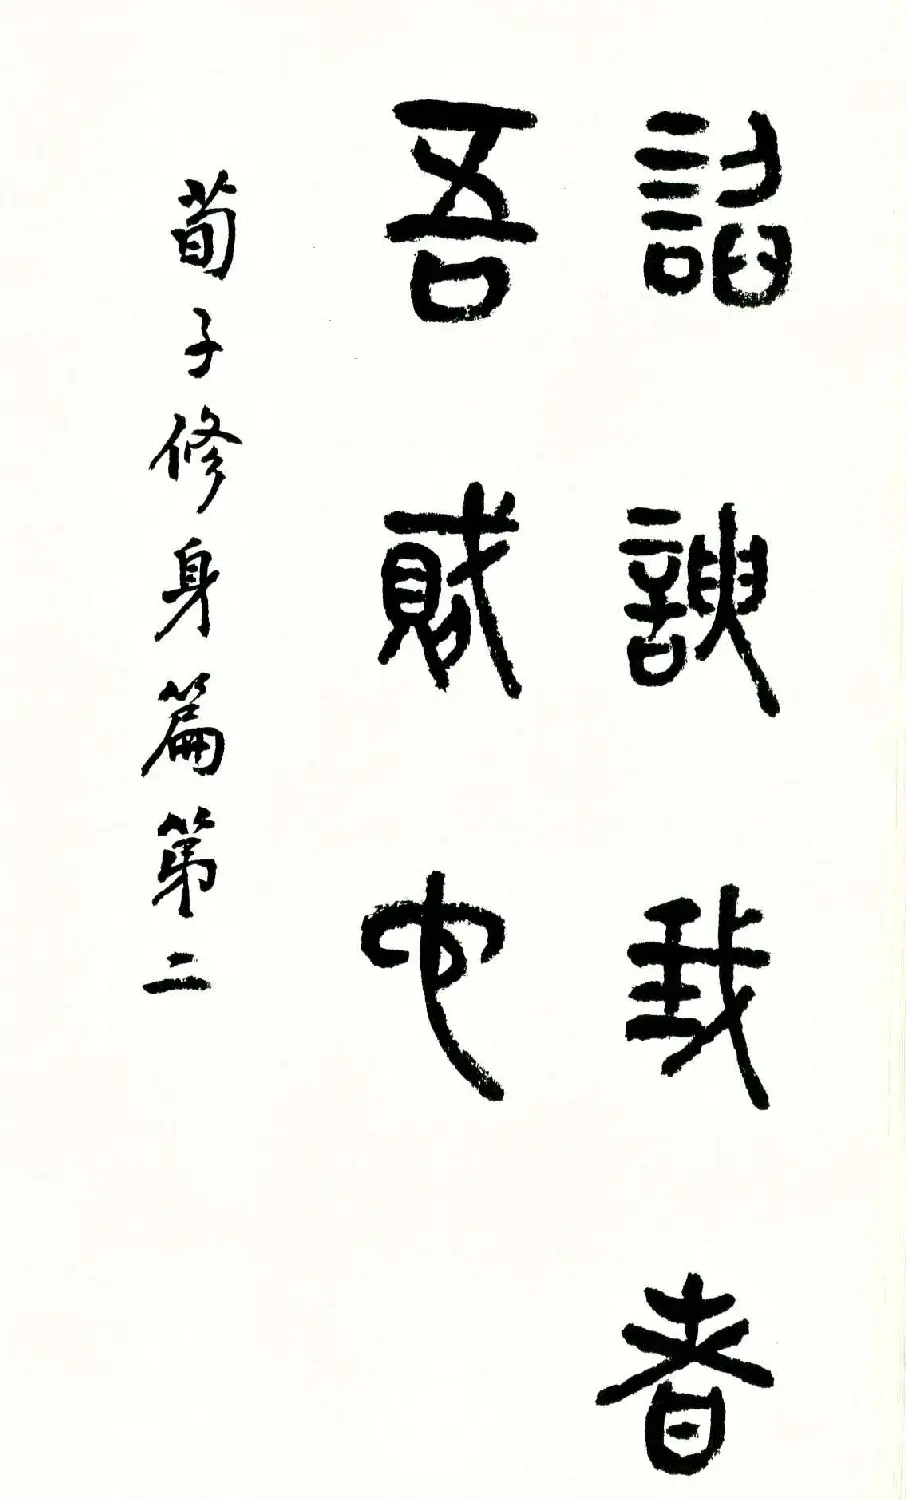 諂諛我者
吾賊也
荀子修身篇第二